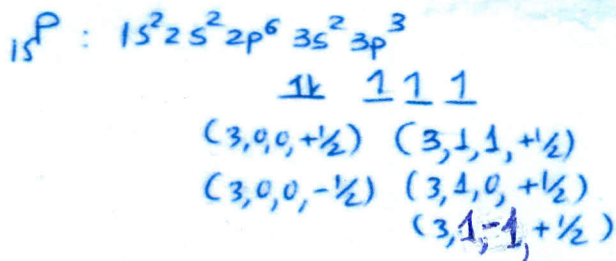 15P : 1s²2s²2p⁶ 3s²3p³
⥮ 1 1 1
(3,0,0,+1/2) (3,1,1,+1/2)
(3,0,0,-1/2) (3,1,0,+1/2)
(3,1,-1,+1/2)